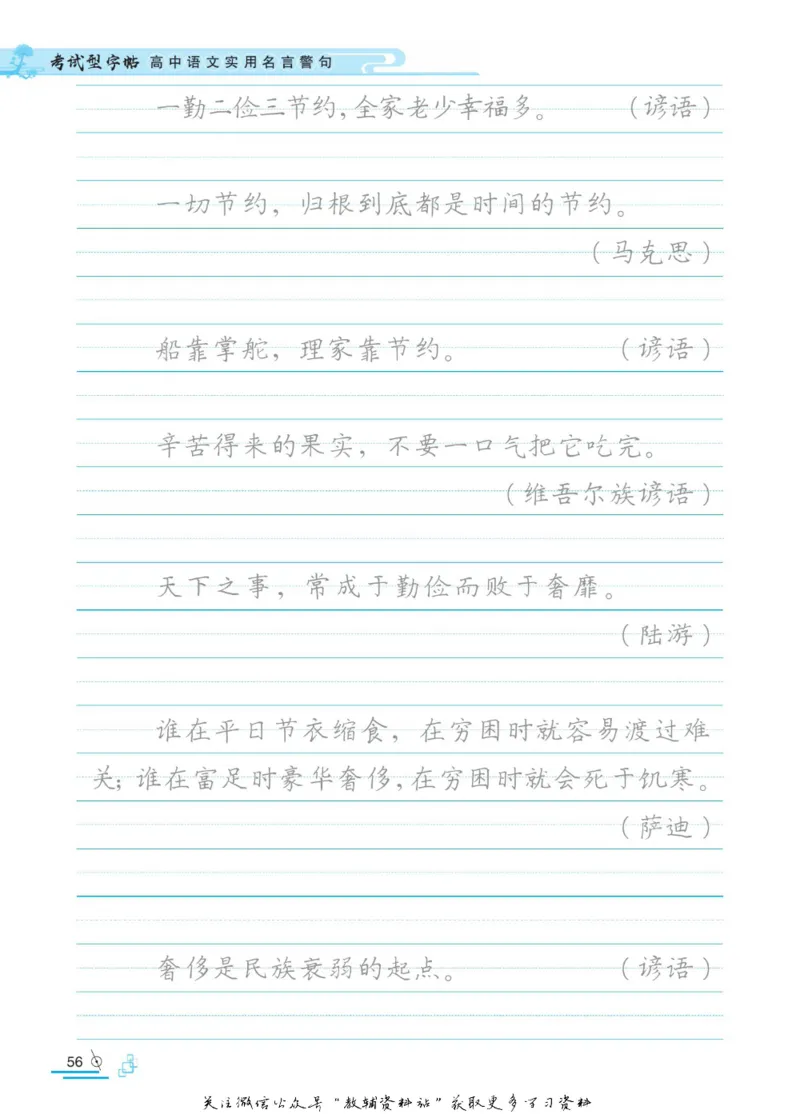 考试型字帖 高中语文实用名言警句
一勤二俭三节约,全家老少幸福多。 (谚语)
一切节约，归根到底都是时间的节约。
(马克思)
船靠掌舵，理家靠节约。 (谚语)
辛苦得来的果实，不要一口气把它吃完。
(维吾尔族谚语)
天下之事，常成于勤俭而败于奢靡。
(陆游)
谁在平日节衣缩食，在穷困时就容易渡过难
关;谁在富足时豪华奢侈,在穷困时就会死于饥寒。
(萨迪)
奢侈是民族衰弱的起点。 (谚语)
56
关注微信公众号“教辅资料站”获取更多学习资料